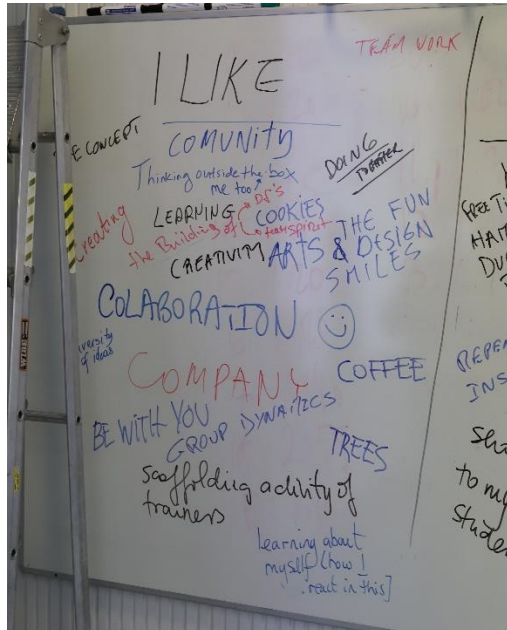 TEAM WORK
I LIKE
E CONCEPT
COMUNITY
Thinking outside the box
me too
DOING
TOGETHER
Creating
LEARNING
DJ's
COOKIES
the Building of
team spirit
THE FUN
CREATIVITY
ARTS & DESIGN
SMILES
COLABORATION
versity
of ideas
COMPANY
COFFEE
BE WITH YOU
GROUP DYNAMICS
TREES
scaffolding activity of
trainers
learning about
myself (how I
react in this]
FREE TI
HAM
DU
REPE
INS
sha
to my
stude